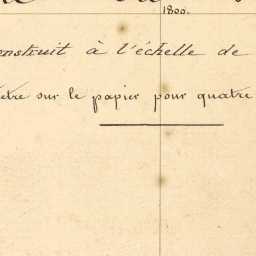 1800.
onstruit à l'échelle de
ètre sur le papier pour quatre